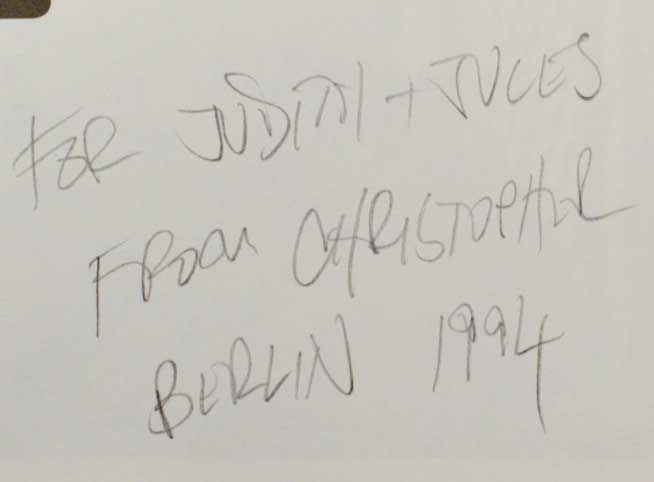 FOR JUDITH + JULES
FROM CHRISTOPHER
BERLIN 1994